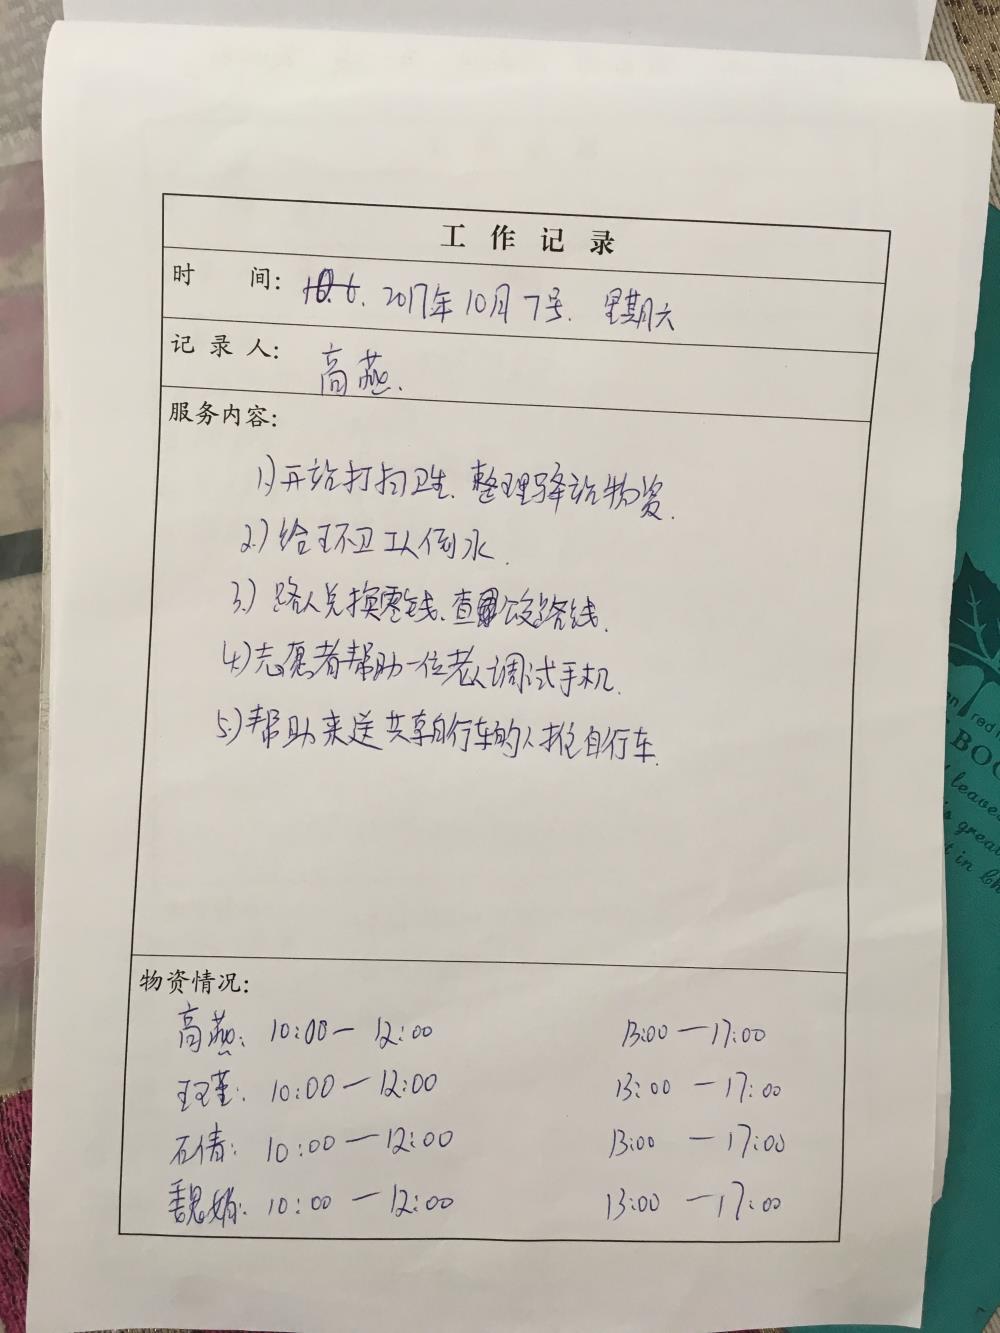 工作记录
时 间: 2017年10月7号. 星期六
记录人: 高燕.
服务内容:
1) 开站打扫卫生. 整理驿站物资.
2.) 给环卫工人倒水.
3.) 路人兑换零钱、查公交路线.
4) 志愿者帮助一位老人调试手机.
5.) 帮助来送共享自行车的人推自行车.
物资情况:
高燕: 10:00—12:00 13:00—17:00
王瑾: 10:00—12:00 13:00—17:00
石倩: 10:00—12:00 13:00—17:00
魏娟: 10:00—12:00 13:00—17:00
red
BOO
leave
great
in